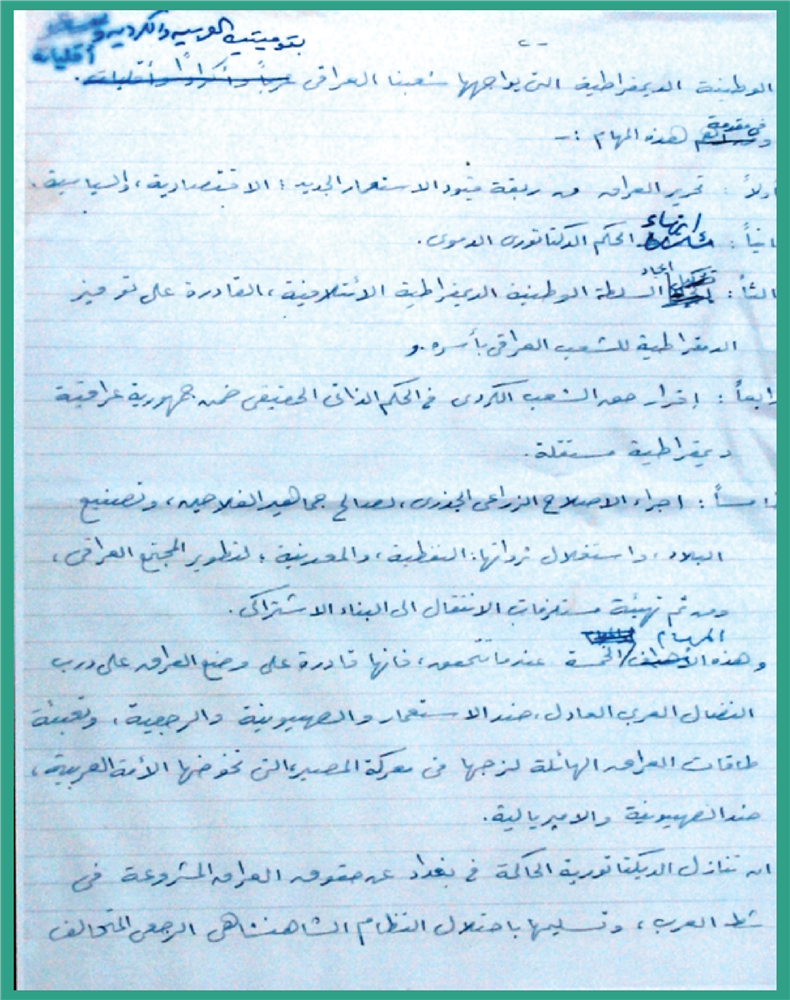 بقوميتيه العربيه والكرديه و
أقليات
- ٢ -
الوطنية الديمقراطية التي يواجهها شعبنا العراقي عرباً وأكراداً وأقليات.
في مقدمة
و هذه المهام :-
أولاً : تحرير العراق من ربقة قيود الاستعمار الجديد ؛ الاقتصادية ، والسياسية .
انهاء
انياً : الحكم الدكتاتوري الدموي .
ايجاد
الثاً : السلطة الوطنية الديمقراطية الائتلافية ، القادرة على توفير
الديمقراطية للشعب العراقي بأسره . و
رابعاً : إقرار حق الشعب الكردي في الحكم الذاتي الحقيقي ضمن جمهورية عراقية
ديمقراطية مستقلة .
امساً : اجراء الاصلاح الزراعي الجذري ، لصالح جماهير الفلاحين ، وتصنيع
البلاد ، واستغلال ثرواتها : النفطية ، والمعدنية ؛ لتطوير المجتمع العراقي ،
ومن ثم تهيئة مستلزمات الانتقال الى البناء الاشتراكي .
المهام
وهذه الأهداف الخمسة عندما تتحقق ، فانها قادرة على وضع العراق على درب
النضال العربي العادل ، ضد الاستعمار والصهيونية والرجعية ، وتعبئة
طاقات العراق الهائلة لزجها في معركة المصير التي تخوضها الأمة العربية ،
ضد الصهيونية والامبريالية .
ان تنازل الديكتاتورية الحاكمة في بغداد عن حقوق العراق المشروعة في
شط العرب ، وتسليمها باحتلال النظام الشاهنشاهي الرجعي المتحالف